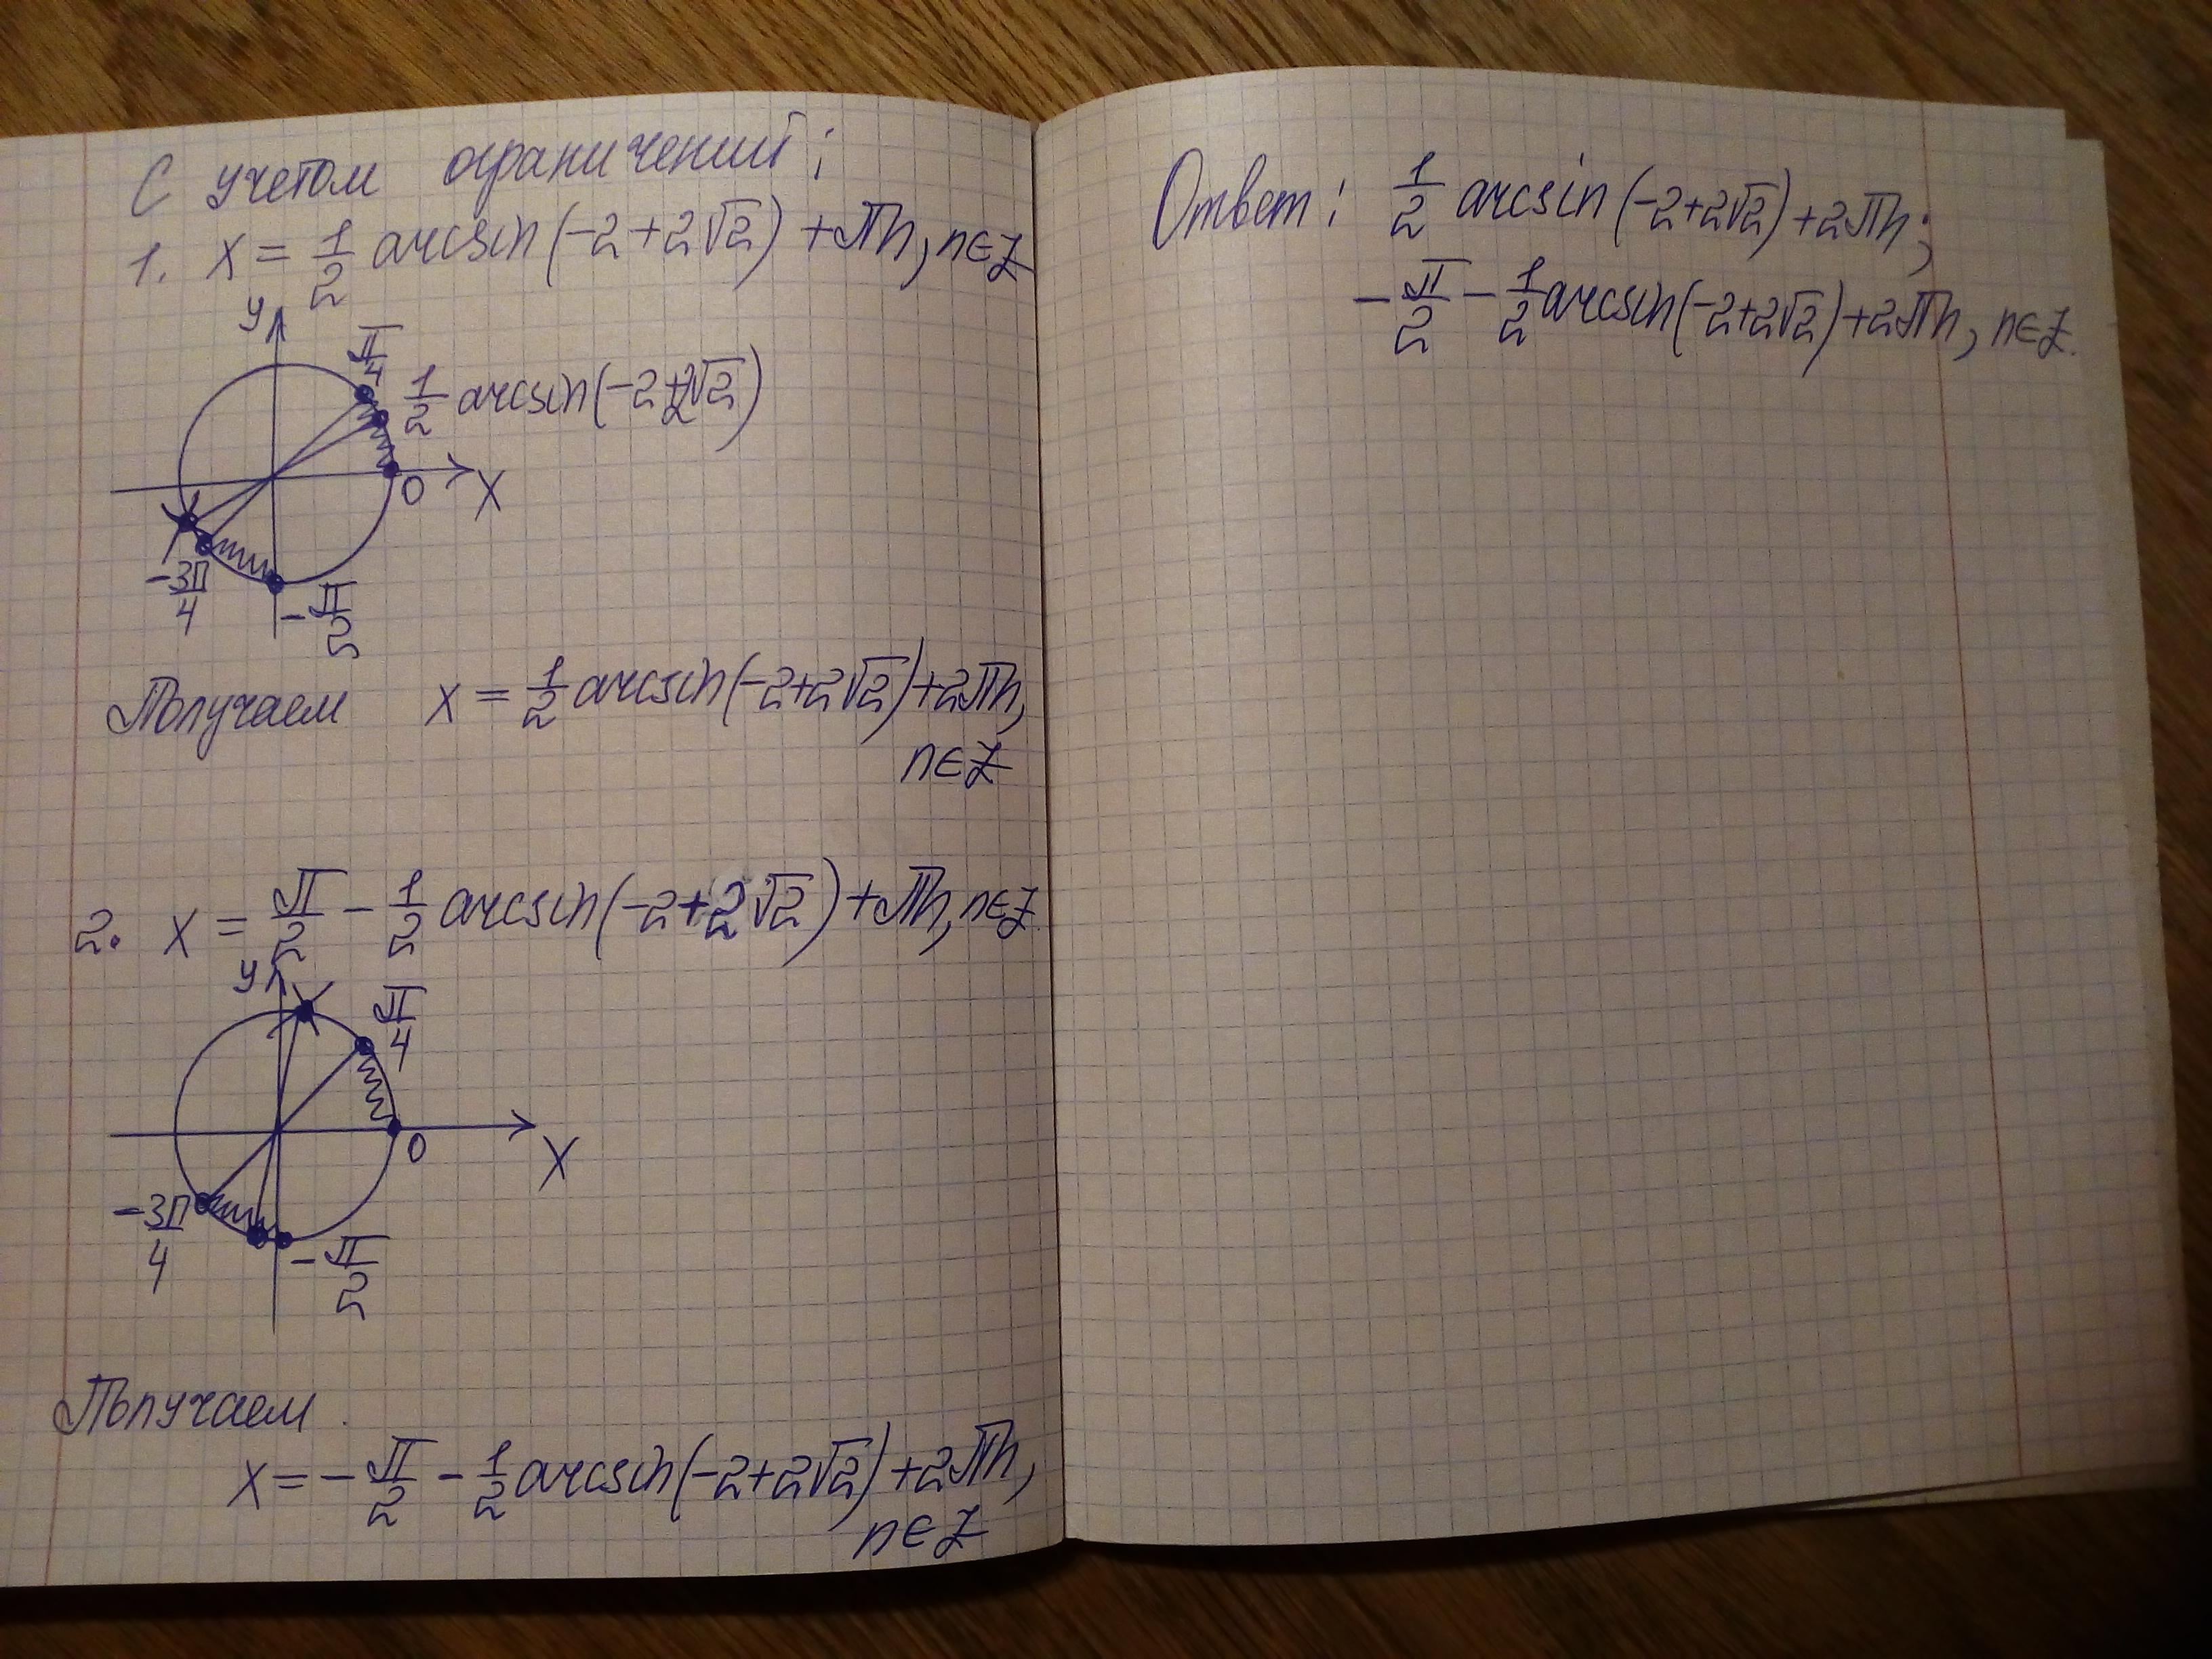 С учетом ограничений:
1. x = 1/2 arcsin(-2+2√2) + πn, n∈Z
y
π/4
1/2 arcsin(-2+2√2)
0
x
-3π/4
-π/2
Получаем x = 1/2 arcsin(-2+2√2)+2πn,
n∈Z
2. x = π/2 - 1/2 arcsin(-2+2√2) + πn, n∈Z.
y
π/4
0
x
-3π/4
-π/2
Получаем
x = -π/2 - 1/2 arcsin(-2+2√2) + 2πn,
n∈Z
Ответ: 1/2 arcsin(-2+2√2)+2πn;
-π/2 - 1/2 arcsin(-2+2√2)+2πn, n∈Z.